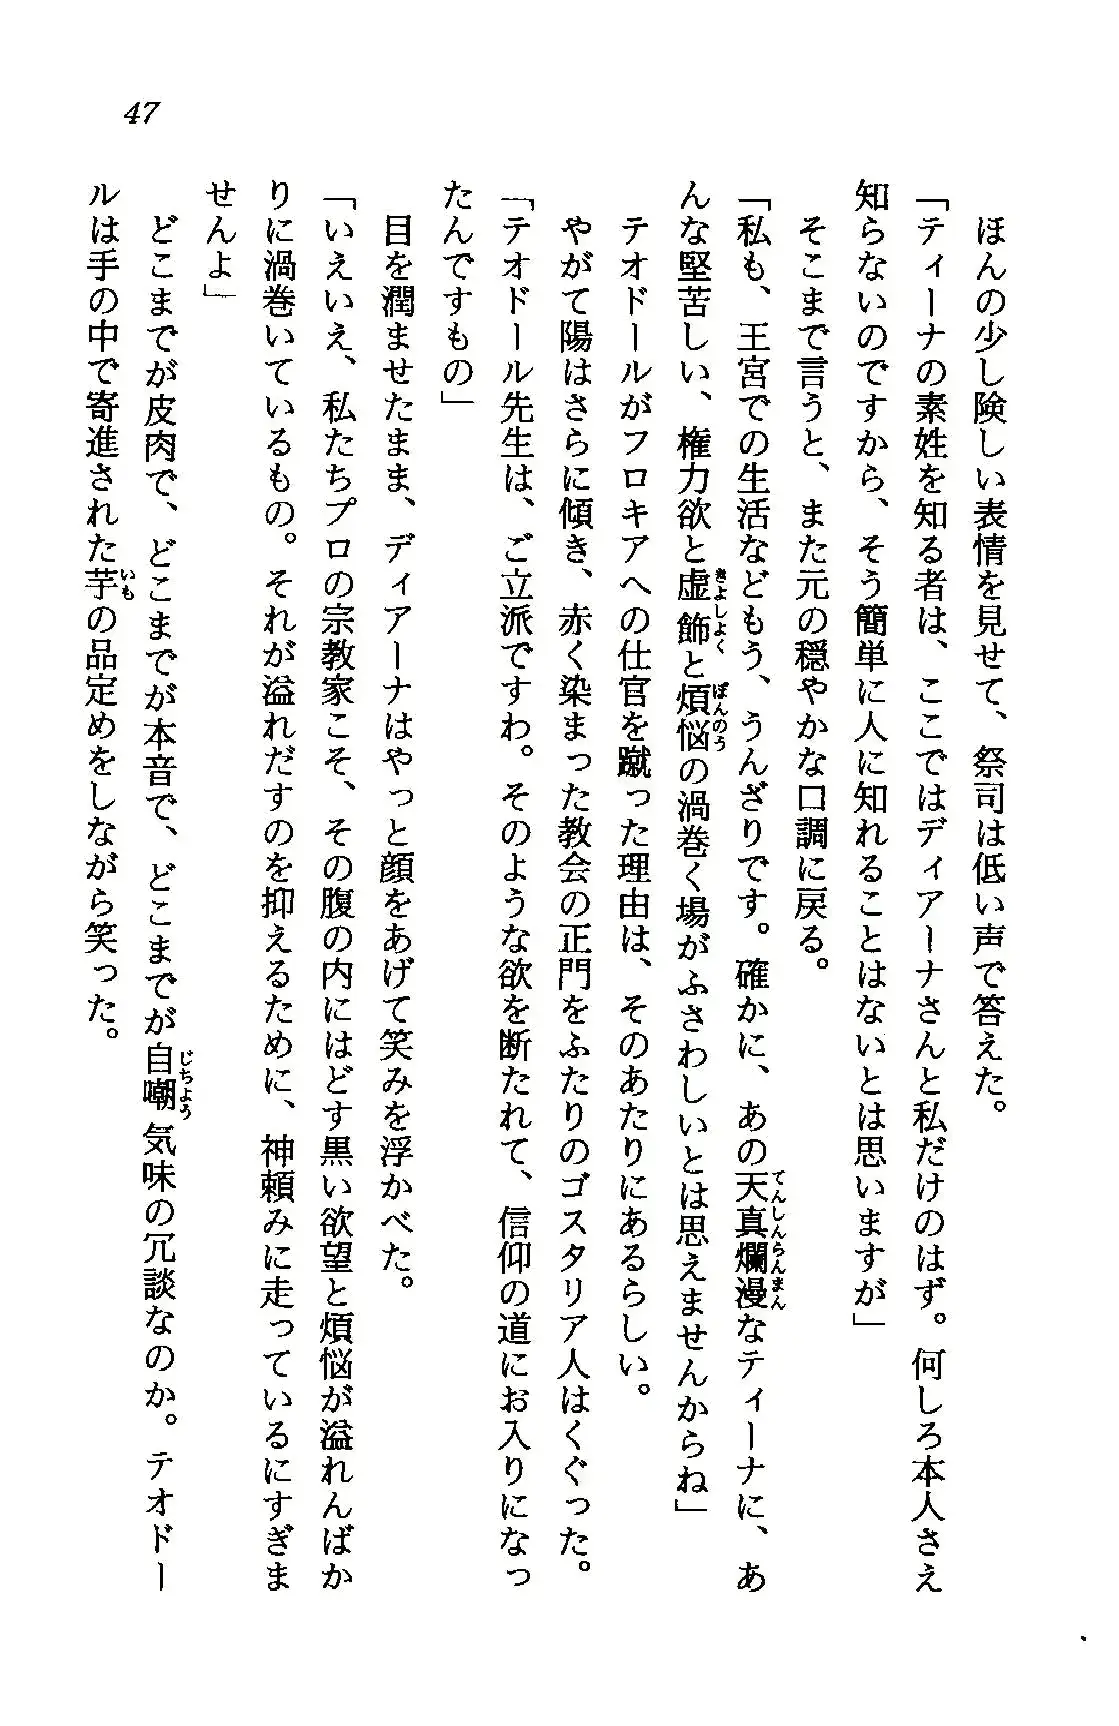 47
ほんの少し険しい表情を見せて、祭司は低い声で答えた。
「ティーナの素姓を知る者は、ここではディアーナさんと私だけのはず。何しろ本人さえ
知らないのですから、そう簡単に人に知れることはないとは思いますが」
そこまで言うと、また元の穏やかな口調に戻る。
「私も、王宮での生活などもう、うんざりです。確かに、あの天真爛漫なティーナに、あ
んな堅苦しい、権力欲と虚飾と煩悩の渦巻く場がふさわしいとは思えませんからね」
テオドールがフロキアへの仕官を蹴った理由は、そのあたりにあるらしい。
やがて陽はさらに傾き、赤く染まった教会の正門をふたりのゴスタリア人はくぐった。
「テオドール先生は、ご立派ですわ。そのような欲を断たれて、信仰の道にお入りになっ
たんですもの」
目を潤ませたまま、ディアーナはやっと顔をあげて笑みを浮かべた。
「いえいえ、私たちプロの宗教家こそ、その腹の内にはどす黒い欲望と煩悩が溢れんばか
りに渦巻いているもの。それが溢れだすのを抑えるために、神頼みに走っているにすぎま
せんよ」
どこまでが皮肉で、どこまでが本音で、どこまでが自嘲気味の冗談なのか。テオドー
ルは手の中で寄進された芋の品定めをしながら笑った。